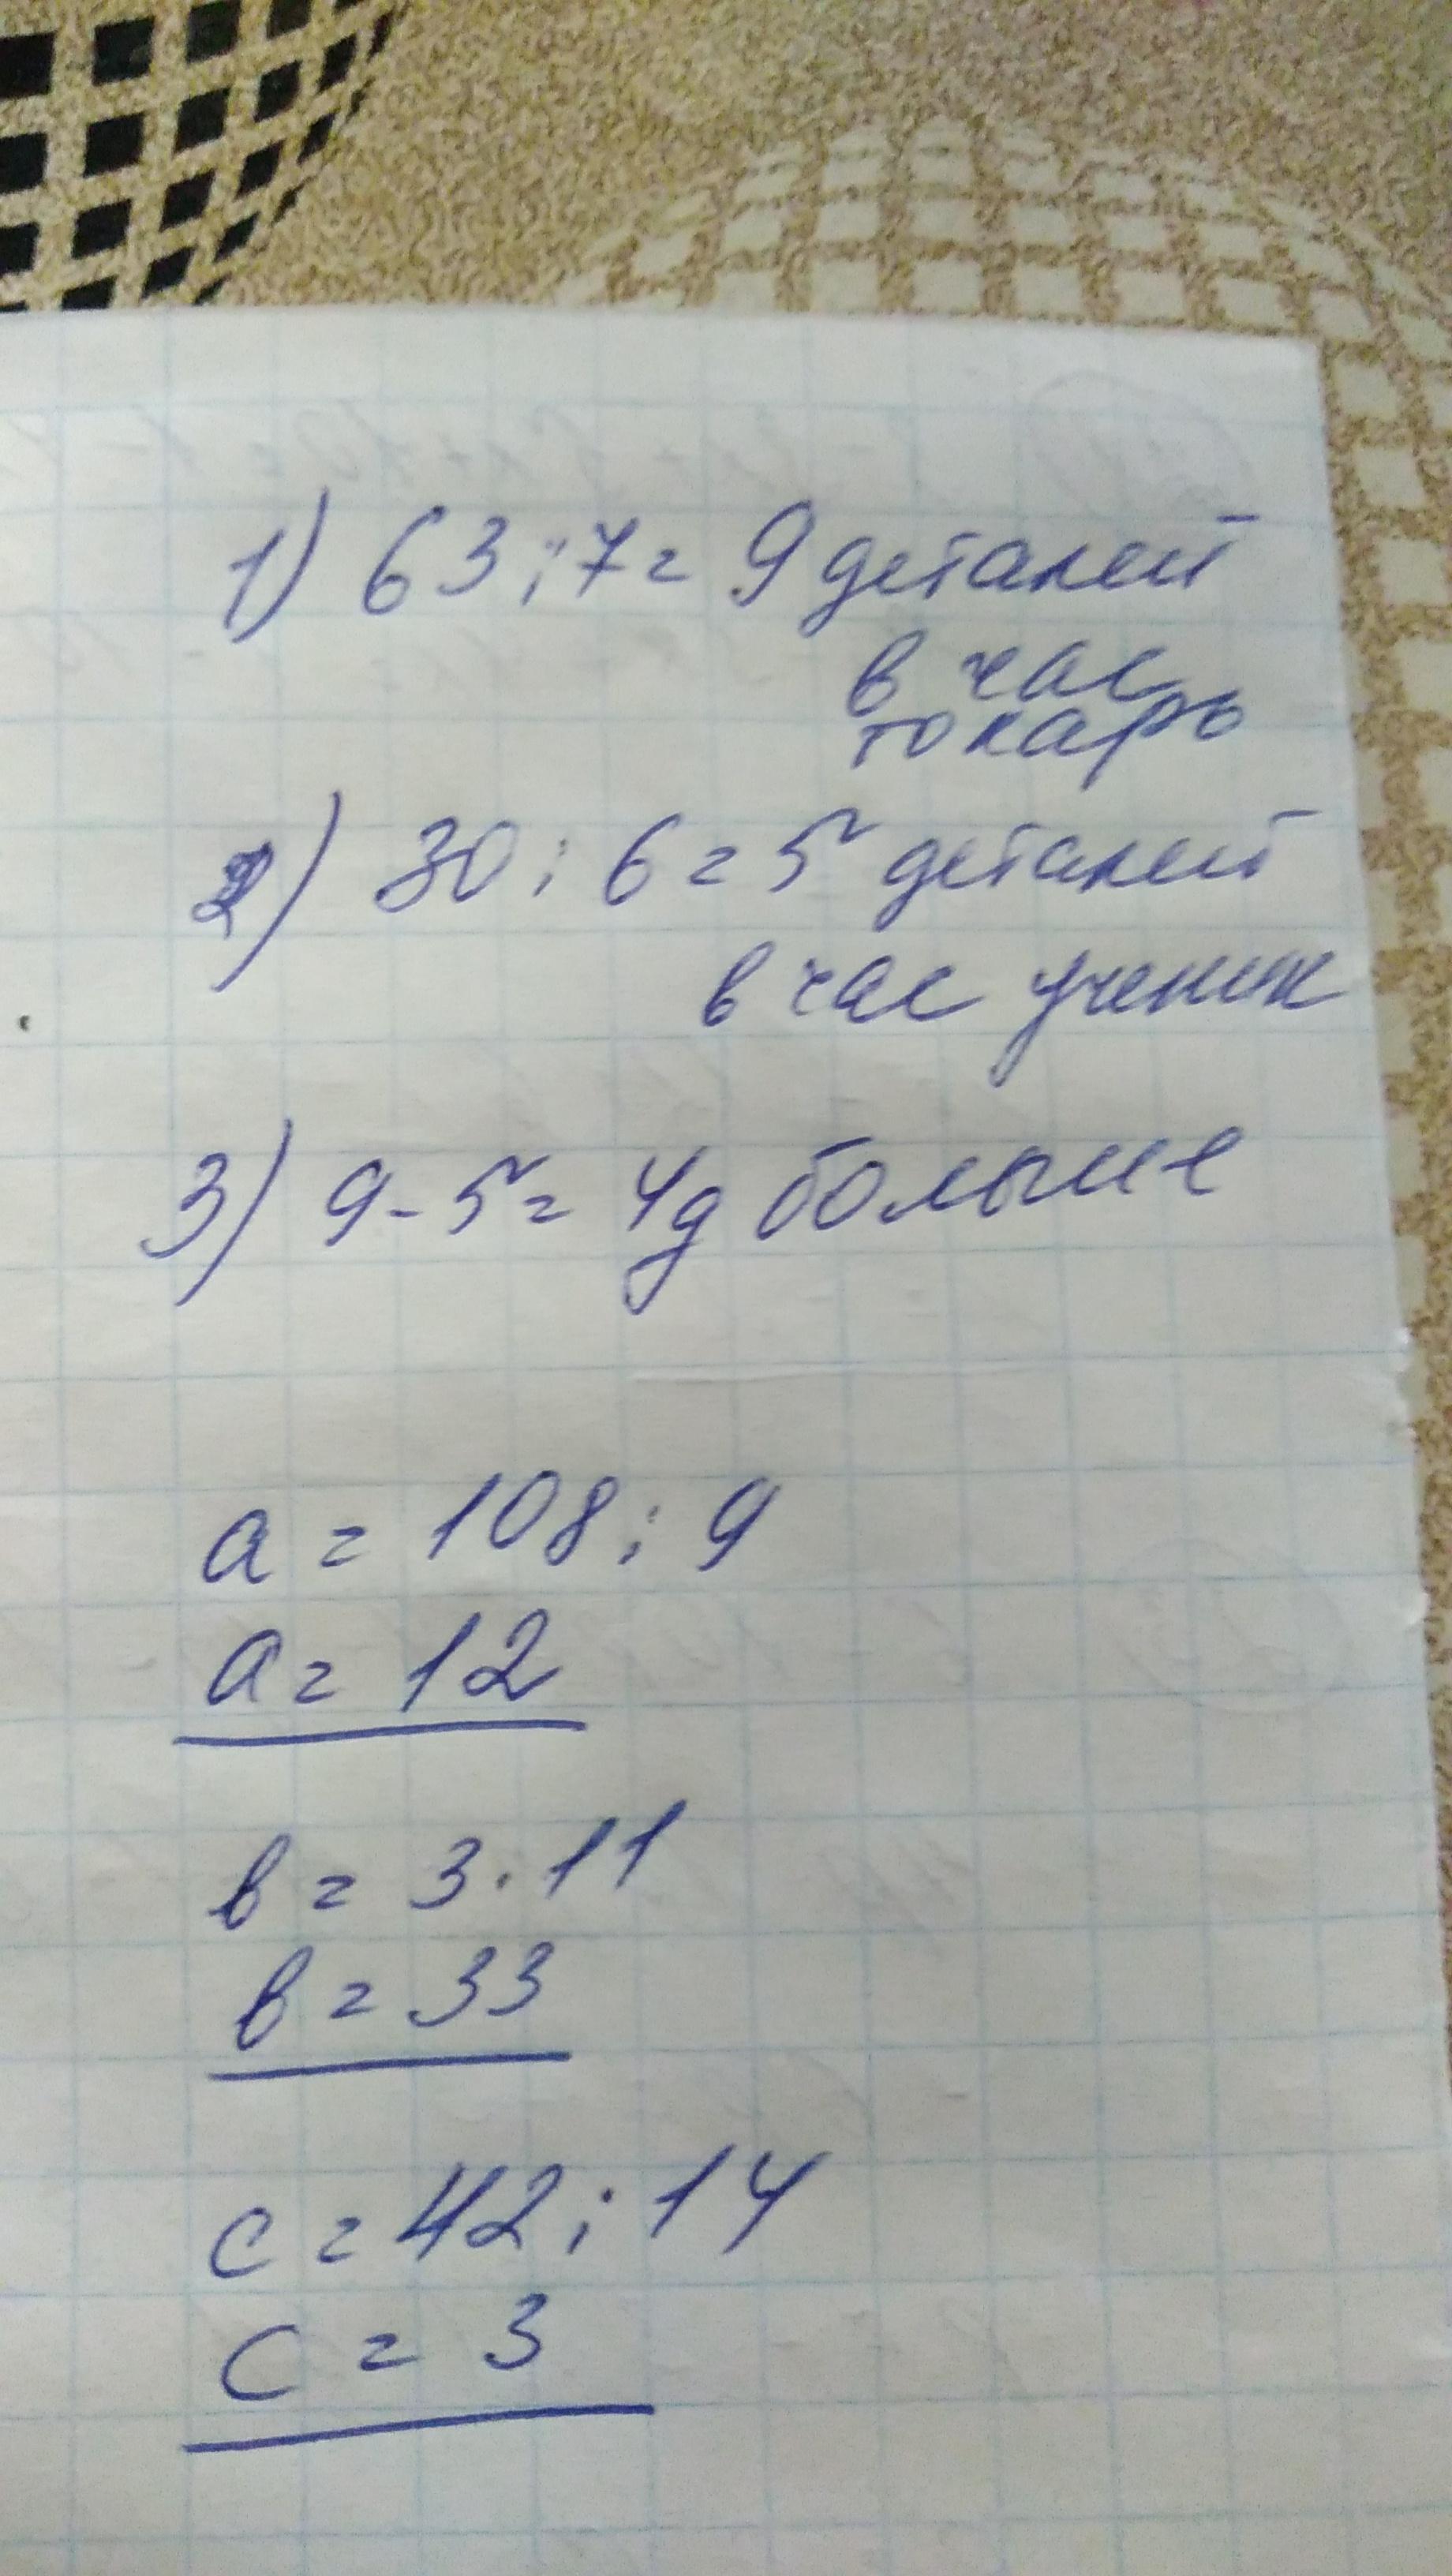 1) 63 : 7 = 9 деталей
в час
токарь
2) 30 : 6 = 5 деталей
в час ученик
3) 9 - 5 = 4д больше
a = 108 : 9
a = 12
в = 3 · 11
в = 33
c = 42 : 14
c = 3